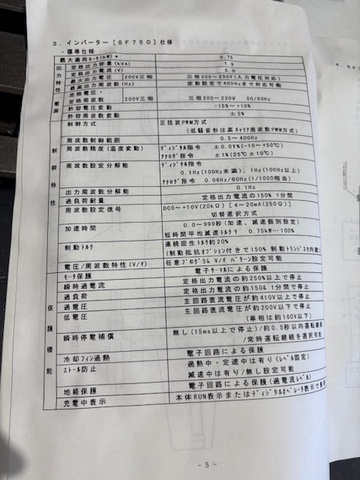 3. インバーター[SF750]仕様
・標準仕様
最大適用モータ(kW) 0.75
出力特性 定格出力容量(kVA) 1.9
定格出力電流(A) 5.0
最大出力電圧 200V三相 三相200~230V(入力電圧対応)
最高出力周波数(Hz) 定数設定で400Hzまで対応可能
電源 定格電圧・周波数 200V三相 三相200~230V 50/60Hz
許容電圧変動 -15%~+10%
許容周波数変動 ±5%
制御特性 制御方式 正弦波PWM方式
(低騒音形は高キャリア周波数PWM方式)
周波数制御範囲 0.5~400Hz
周波数精度(温度変動) ディジタル指令 ±0.01%(-10~+50℃)
アナログ指令 ±1%(25℃±10℃)
周波数設定分解能 ディジタル指令
0.1Hz(100Hz未満)、1Hz(100Hz以上)
アナログ指令 0.06Hz/60Hz(1/1000相当)
出力周波数分解能 0.1Hz
過負荷耐量 定格出力電流の150% 1分間
周波数設定信号 DC0~+10V(20kΩ)[4~20mA(250Ω)]
切替選択方式
加速時間 0.0~999秒(加速、減速個別設定)
制動トルク 短時間平均減速トルク 0.75kW…100%
連続回生トルク約20%
(制動抵抗オプション付きで150% 制動トランジスタ内蔵)
電圧/周波数特性(V/f) 任意プログラム V/f パターン設定可能
保護機能 モータ保護 電子サーマルによる保護
瞬時過電流 定格出力電流の約250%以上で停止
過負荷 定格出力電流の150% 1分間で停止
過電圧 主回路直流電圧が約410V以上で停止
低電圧 主回路直流電圧が約200V以下で停止
(単相は約160V以下)
瞬時停電補償 無し(15ms以上で停止)/約0.5秒以内運転継続
/常時運転継続を選択可
冷却フィン過熱 電子回路による保護
ストール防止 過熱中・定速中は有り(レベル固定)
減速中は有り/無し設定可能
地絡保護 電子回路による保護(過電流レベル)
充電中表示 本体RUN表示またはディジタルオペレータ表示で
- 5 -